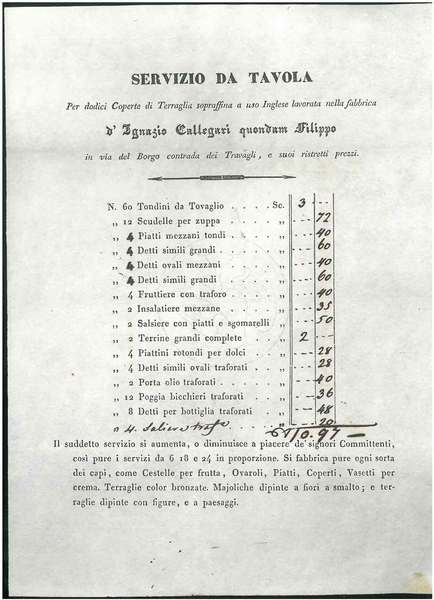 SERVIZIO DA TAVOLA
Per dodici Coperte di Terraglia sopraffina a uso Inglese lavorata nella fabbrica
d' Ignazio Callegari quondam Filippo
in via del Borgo contrada dei Travagli, e suoi ristretti prezzi.
N. 60 Tondini da Tovaglio . . . . Sc. 3 --
„ 12 Scudelle per zuppa . . . . „ -- 72
„ 4 Piatti mezzani tondi . . . . „ -- 40
„ 4 Detti simili grandi . . . . . „ -- 60
„ 4 Detti ovali mezzani . . . . „ -- 40
„ 4 Detti simili grandi . . . . . „ -- 60
„ 4 Fruttiere con traforo . . . . „ -- 40
„ 2 Insalatiere mezzane . . . . „ -- 35
„ 2 Salsiere con piatti e sgomarelli „ -- 50
„ 2 Terrine grandi complete . . „ 2 --
„ 4 Piattini rotondi per dolci . . „ -- 28
„ 4 Detti simili ovali traforati . . „ -- 28
„ 2 Porta olio traforati . . . . . „ -- 40
„ 12 Poggia bicchieri traforati . . „ -- 36
„ 8 Detti per bottiglia traforati . „ -- 48
„ 4. Saliere -- 20
10.97 —
Il suddetto servizio si aumenta, o diminuisce a piacere de' signori Committenti,
così pure i servizi da 6 18 e 24 in proporzione. Si fabbrica pure ogni sorta
dei capi, come Cestelle per frutta, Ovaroli, Piatti, Coperti, Vasetti per
crema. Terraglie color bronzate. Majoliche dipinte a fiori a smalto; e ter-
raglie dipinte con figure, e a paesaggi.